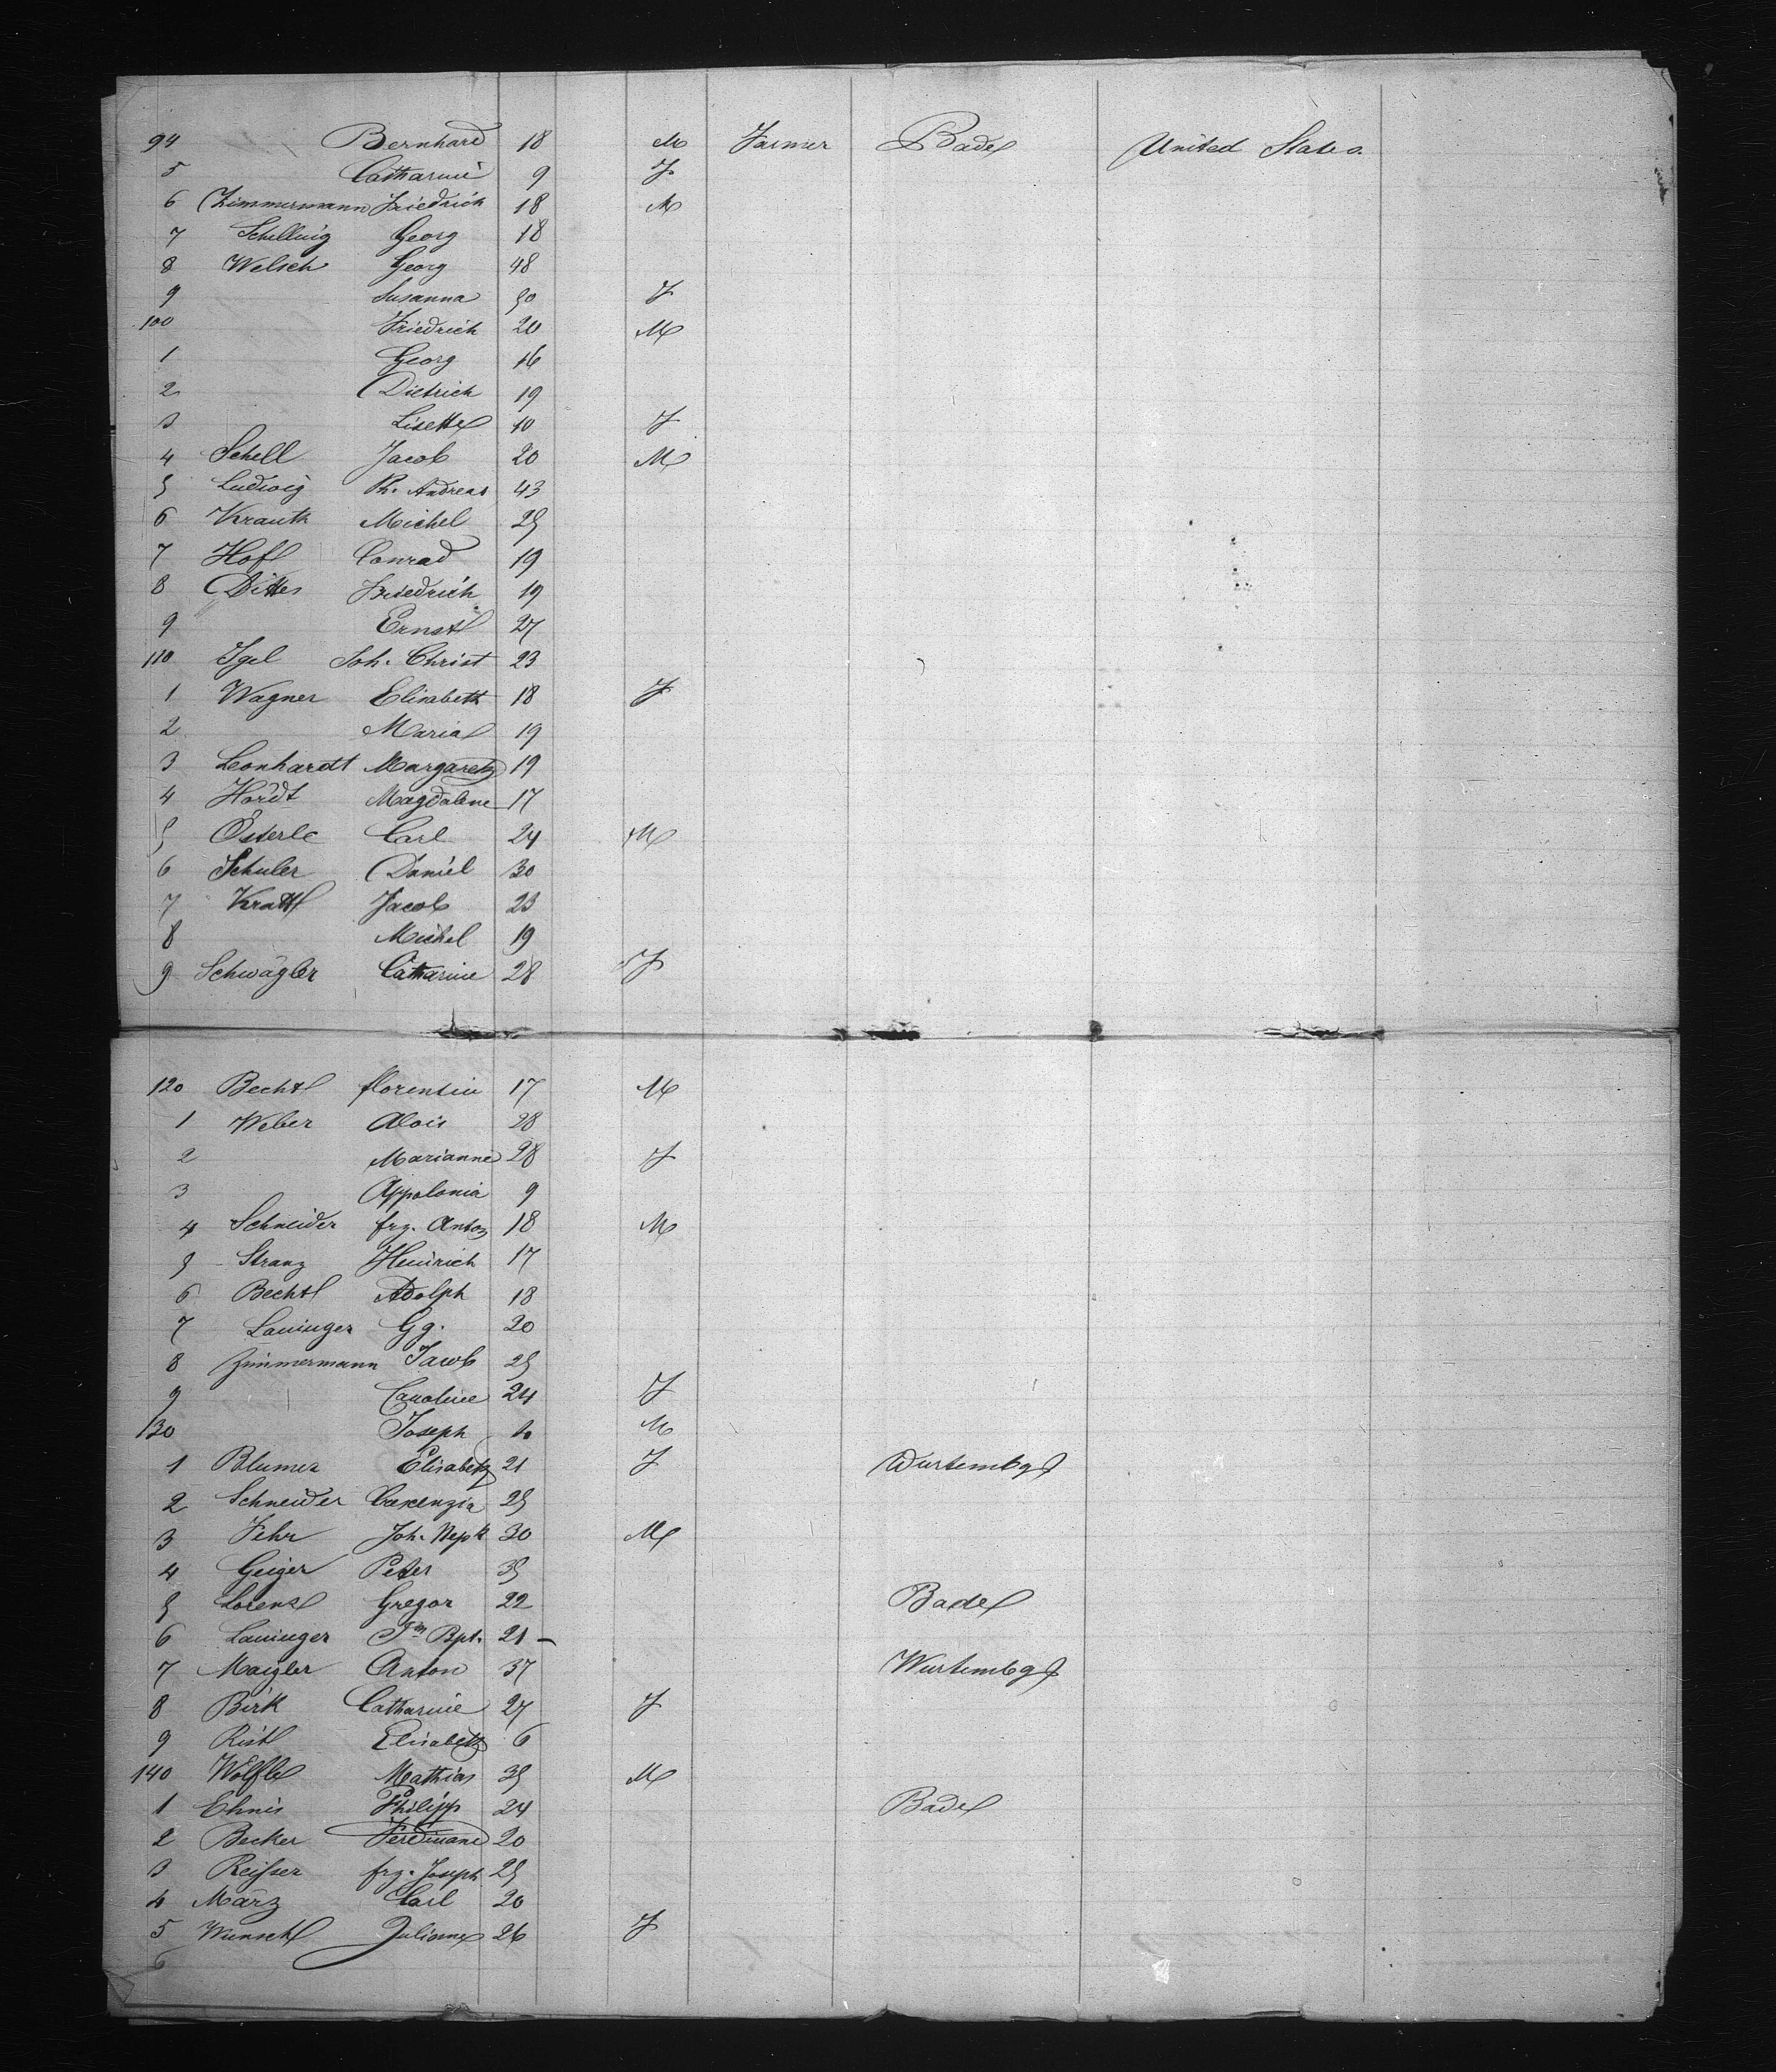 94 Bernhard 18 M Farmer Bade United States
5 Catharine 9 F
6 Zimmermann Friedrich 18 M
7 Schelling Georg 18
8 Welsch Georg 48
9 Susanna 50 F
100 Friedrich 20 M
1 Georg 16
2 Dietrich 19
3 Lisette 10 F
4 Schell Jacob 20 M
5 Ludwig Ph. Andreas 43
6 Krauth Michel 25
7 Hof Conrad 19
8 Dittes Friedrich 19
9 Ernst 27
110 Igel Joh. Christ 23
1 Wagner Elisabeth 18 F
2 Maria 19
3 Leonhardt Margareth 19
4 Hördt Magdalene 17
5 Österle Carl 24 M
6 Schuler Daniel 30
7 Kratt Jacob 23
8 Michel 19
9 Schwägler Catharine 28 F
120 Becht florentin 17 M
1 Weber Alois 28
2 Marianne 28 F
3 Appolonia 9
4 Schneider frz. Anton 18 M
5 Stranz Heinrich 17
6 Becht Adolph 18
7 Lauinger Gg. 20
8 Zimmermann Jacob 25
9 Caroline 24 F
130 Joseph M
1 Blumer Elisabeth 21 F Wurtembg
2 Schneider 25
3 Fehr Joh. Nepk 30 M
4 Geiger Peter 35
5 Lorenz Gregor 22 Bade
6 Lauinger Jn Bpt. 21 –
7 Maigler Anton 37 Wurtembg
8 Birk Catharine 27 F
9 Rist Elisabeth 6
140 Wölfle Mathias 35 M
1 Ehnis Philipp 24 Bade
2 Becker Ferdinand 20
3 Reisser frz. Joseph 25
4 März Carl 20
5 Wunsch Juliane 26 F
6